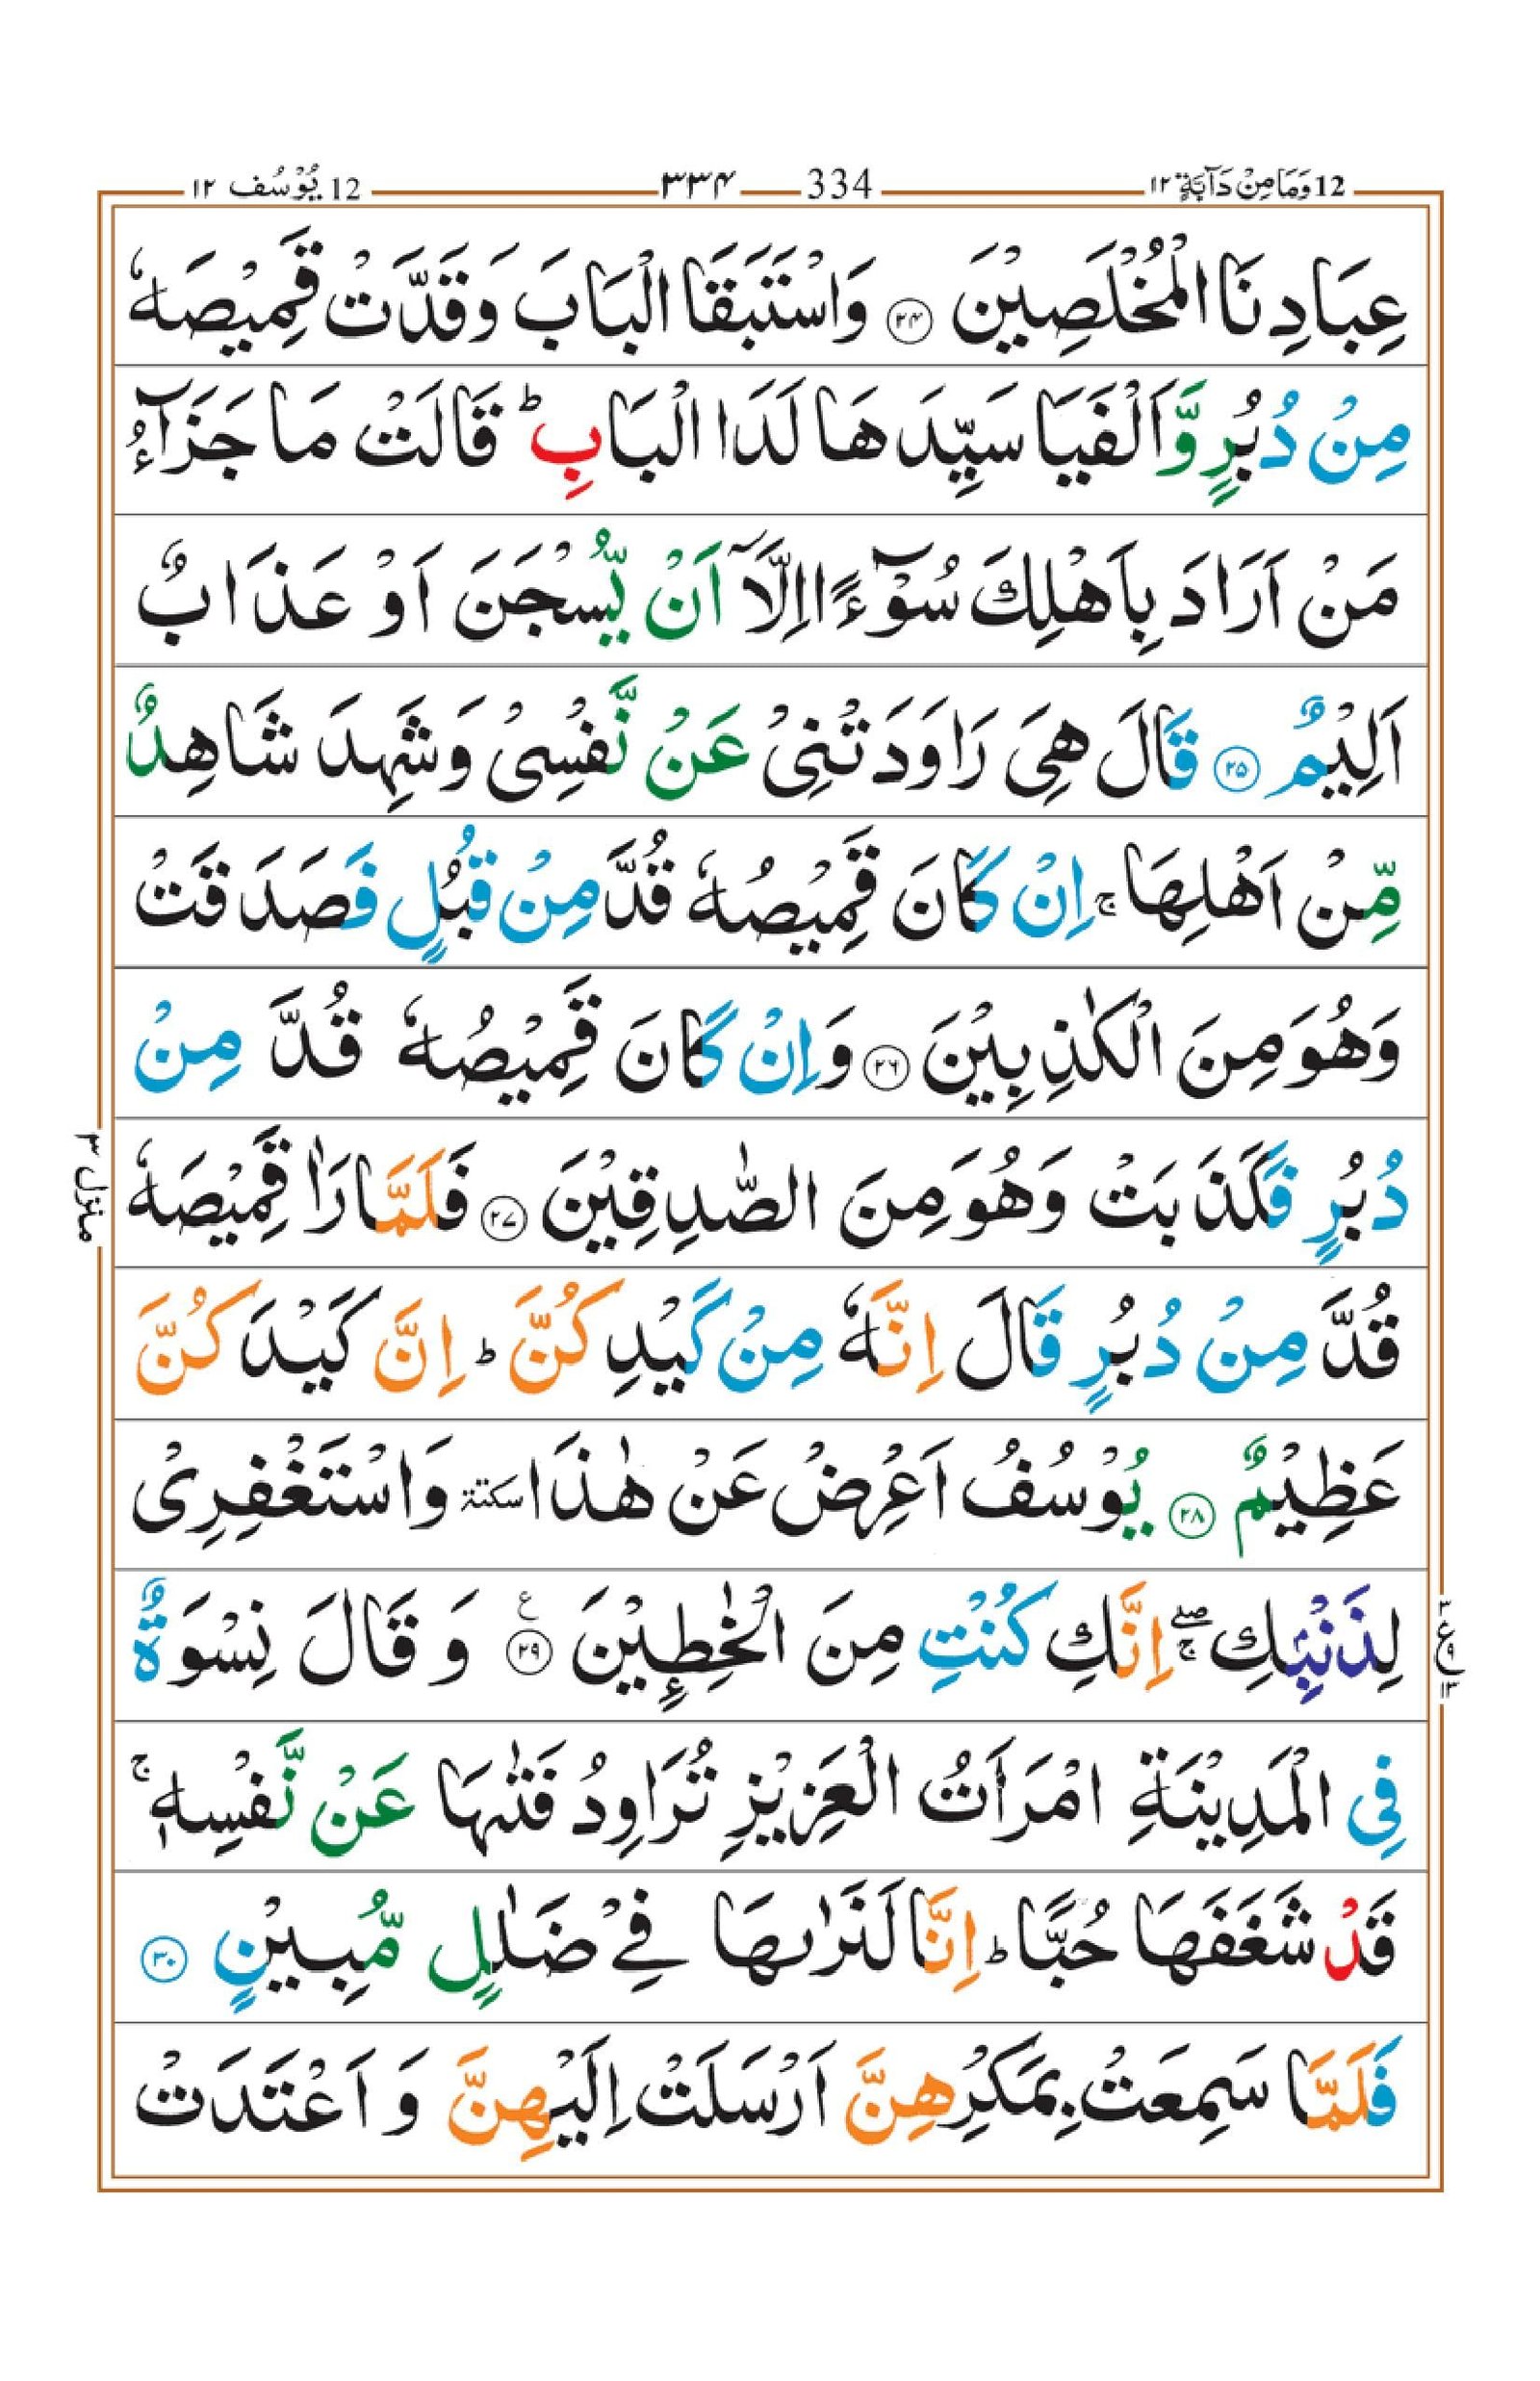 12 وَمَا مِنْ دَآبَّةٍ ١٢
334 ٣٣٤
12 يُوْسُف ١٢
عِبَادِنَا الْمُخْلَصِيْنَ ۝٢٤ وَاسْتَبَقَا الْبَابَ وَقَدَّتْ قَمِيْصَهٗ
مِنْ دُبُرٍ وَّاَلْفَيَا سَيِّدَهَا لَدَا الْبَابِ ؕ قَالَتْ مَا جَزَآءُ
مَنْ اَرَادَ بِاَهْلِكَ سُوْٓءًا اِلَّاۤ اَنْ يُّسْجَنَ اَوْ عَذَابٌ
اَلِيْمٌ ۝٢٥ قَالَ هِىَ رَاوَدَتْنِىْ عَنْ نَّفْسِىْ وَشَهِدَ شَاهِدٌ
مِّنْ اَهْلِهَا ۚ اِنْ كَانَ قَمِيْصُهٗ قُدَّ مِنْ قُبُلٍ فَصَدَقَتْ
وَهُوَ مِنَ الْكٰذِبِيْنَ ۝٢٦ وَاِنْ كَانَ قَمِيْصُهٗ قُدَّ مِنْ
دُبُرٍ فَكَذَبَتْ وَهُوَ مِنَ الصّٰدِقِيْنَ ۝٢٧ فَلَمَّا رَاٰ قَمِيْصَهٗ
قُدَّ مِنْ دُبُرٍ قَالَ اِنَّهٗ مِنْ كَيْدِكُنَّ ؕ اِنَّ كَيْدَكُنَّ
عَظِيْمٌ ۝٢٨ يُوْسُفُ اَعْرِضْ عَنْ هٰذَا سكتة وَاسْتَغْفِرِىْ
لِذَنْۢبِكِ ۖۚ اِنَّكِ كُنْتِ مِنَ الْخٰطِـِٕيْنَ ۝٢٩ ع وَ قَالَ نِسْوَةٌ
فِى الْمَدِيْنَةِ امْرَاَتُ الْعَزِيْزِ تُرَاوِدُ فَتٰٮهَا عَنْ نَّفْسِهٖ ۚ
قَدْ شَغَفَهَا حُبًّا ؕ اِنَّا لَنَرٰٮهَا فِىْ ضَلٰلٍ مُّبِيْنٍ ۝٣٠
فَلَمَّا سَمِعَتْ بِمَكْرِهِنَّ اَرْسَلَتْ اِلَيْهِنَّ وَ اَعْتَدَتْ
منزل ٣